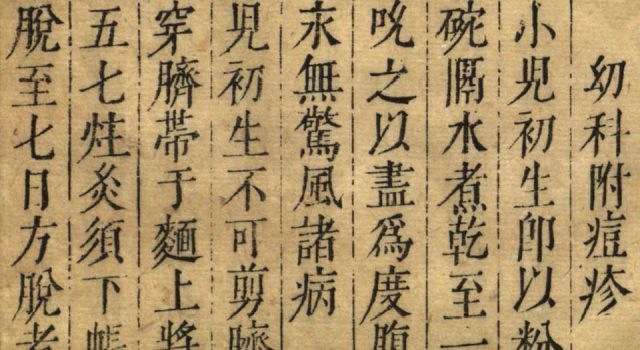 幼科附痘疹
小児初生即以粉
碗鬲水煮乾至一
吮之以盡爲度腹
永無驚風諸病
児初生不可剪臍
穿臍帯于麵上將
五七炷灸須下帳
脫至七日方脫者